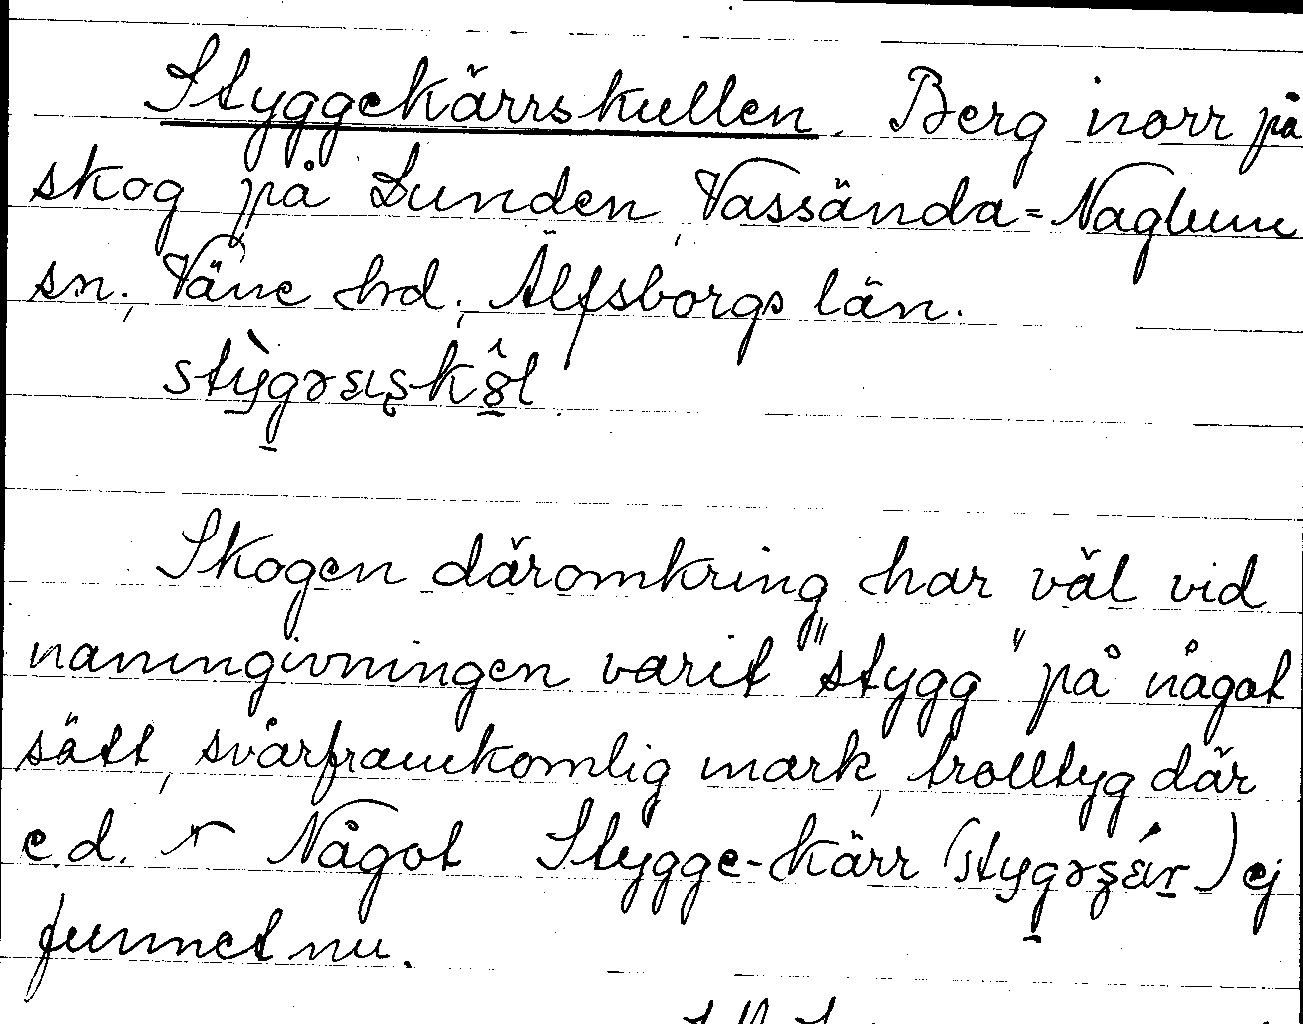 Styggekärrskullen. Berg inorr på
skog på Lunden, Vassända=Naglum
sn., Väne hd., Älfsborgs län.
Skogen däromkring har väl vid
namngivningen varit "stygg" på något
sätt, svårframkomlig mark, trolltyg där
e.d. Något Stygge-kärr ej
funnet nu.